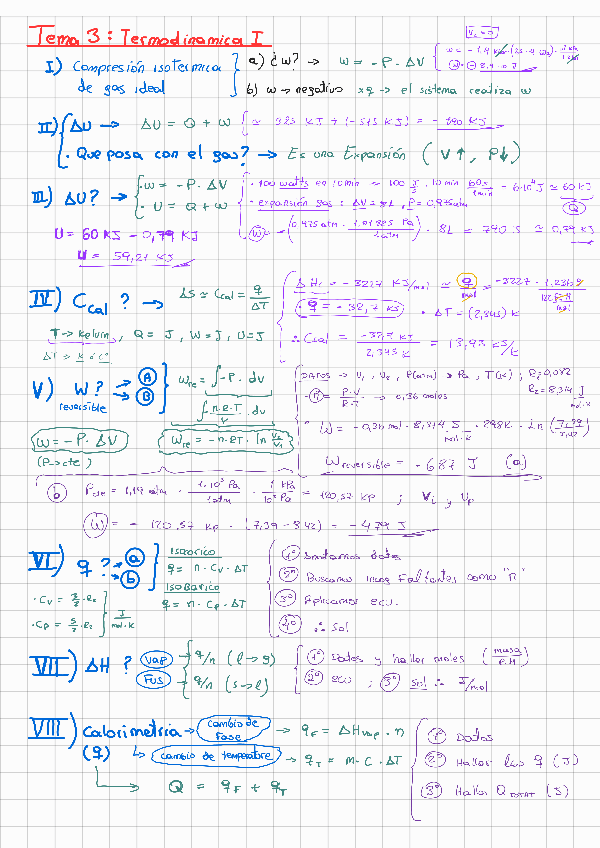 Tema 3: Termodinamica I
I) Compresión isotermica de gas ideal
a) ¿w? → w = -P·ΔV
b) w → negativo xq → el sistema realiza w
II) ΔU → ΔU = Q + W ≈ 325 KJ + (-515 KJ) = -190 KJ
· Que pasa con el gas? → Es una Expansión (V↑, P↓)
III) ΔU? → · W = -P·ΔV
· U = Q + W
· 100 watts en 10 min ≈ 100 J · 10 min 60s/1min = 6·10⁴ J ≈ 60 KJ
Q
· expansión gas: ΔV = 8L, P = 0,975 atm
790 J ≈ 0,79 KJ
U = 60 KJ - 0,79 KJ
U = 59,21 KJ
IV) Ccal ? → ΔS ≈ Ccal = q/ΔT
ΔHc = -3227 KJ/mol ≈ q/mol = -3227 ·
q = -32,7 KJ · ΔT = (2,345) K
T → Kelvin, Q = J, W = J, U = J
∴ Ccal = -32,7 KJ / 2,345 K = 13,93 KJ/K
V) W? → A
→ B
reversible
Wre = ∫-P·dV
∫ n·R·T/V · dV
W = -P·ΔV
(P→cte)
Wre = -n·RT·ln V2/V1
DATOS → V1, V2, P(atm) → Pa, T(K); R1=0,082
R2=8,314 J/mol·K
· n = P·V/R·T → 0,36 moles
Wreversible = -687 J (a)
b) Pcte = 1,19 atm · 1·10⁵ Pa/1atm · 1 kPa/10³ Pa = 120,57 kp ; Vi y Vf
W = -120,57 kp · (7,39 - 3,42) = -479 J
VI) q? → a
→ b
ISOCORICO
q = n·Cv·ΔT
ISOBARICO
q = n·Cp·ΔT
· Cv = 3/2·R2
· Cp = 5/2·R2
J/mol·K
1º Anotamos datos
2º Buscamos incog faltantes como "n"
3º Aplicamos ecu.
4º ∴ Sol
VII) ΔH ? Vap → q/n (l→g)
Fus → q/n (s→l)
1º Datos y hallar moles (masa/P.M)
2º ecu ; 3º Sol ∴ J/mol
VIII) Calorimetria → cambio de fase → qF = ΔHvap · n
(q) ↳ cambio de temperatura → qT = m·C·ΔT
→ Q = qF + qT
1º Datos
2º Hallar las q (J)
3º Hallar Q (J)